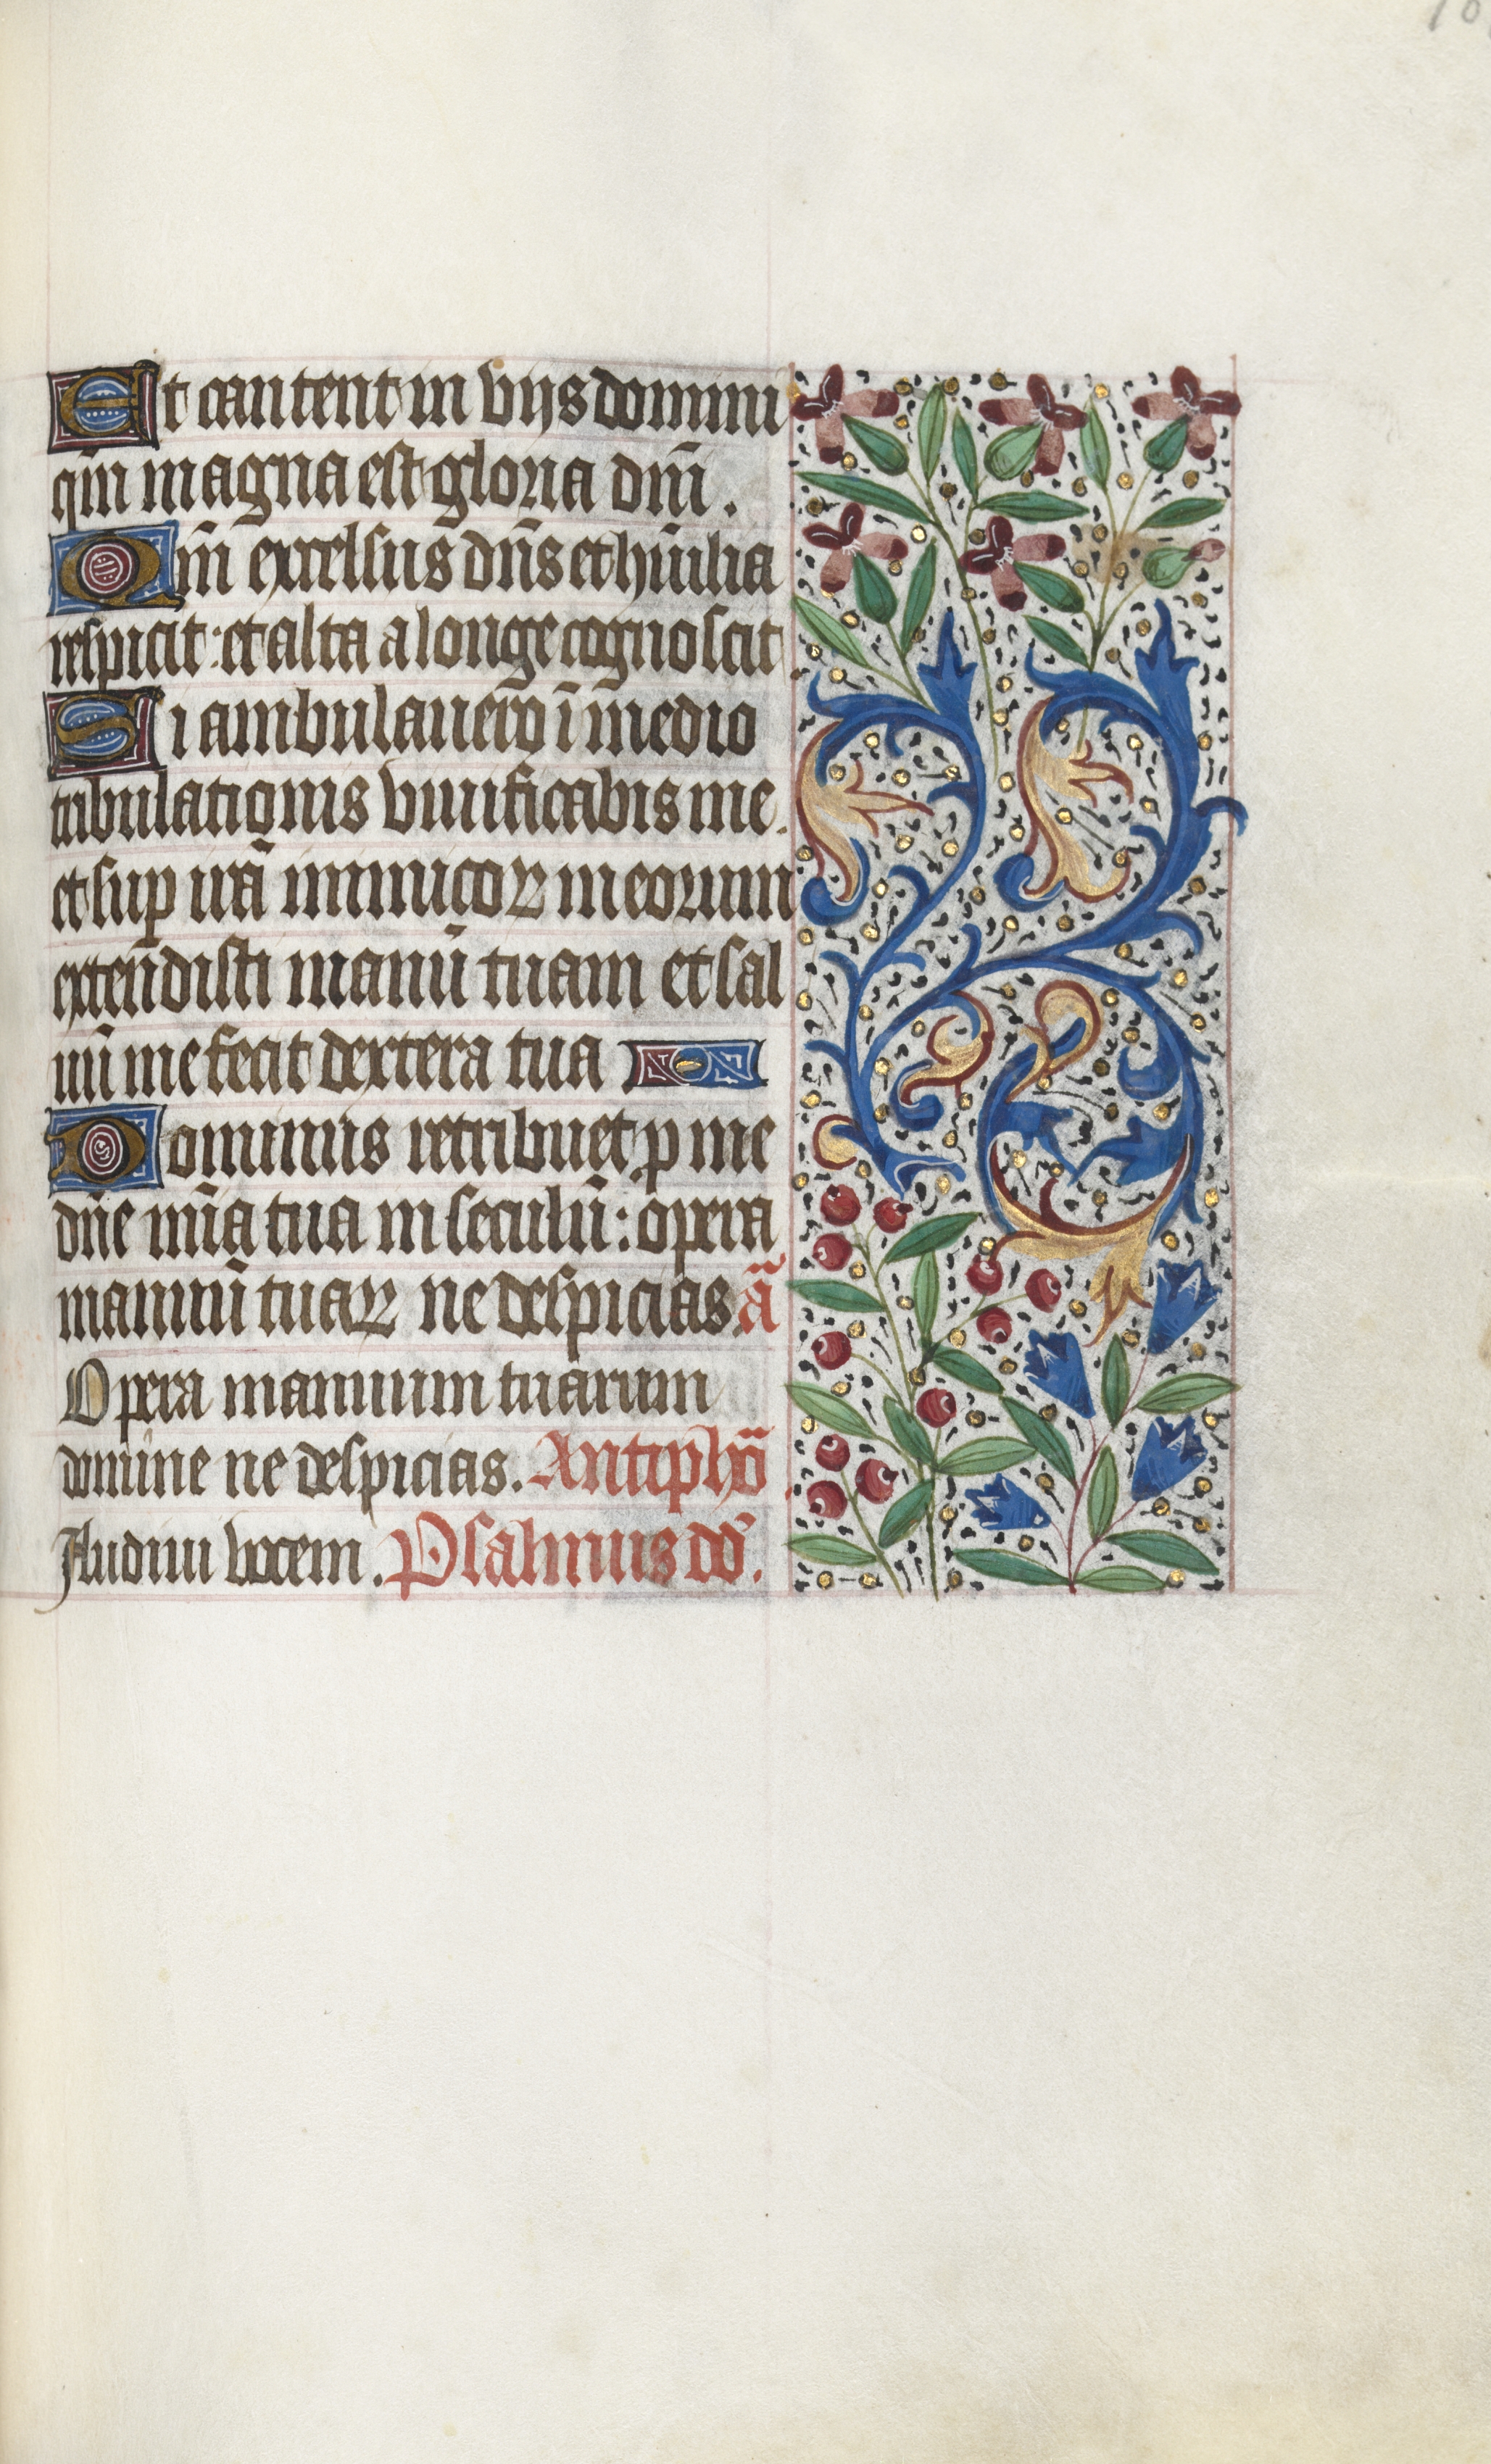 Et cantent in viis domini
qm̄ magna est gloria dn̄i.
Qm̄ excelsus dn̄s et hūilia
respicit: et alta a longe cognoscit
Si ambulauero ī medio
tribulationis viuificabis me.
et sup irā inimicoꝝ meorum
extendisti manū tuam et sal
uū me fecit dextera tua
Dominus retribuet p me
dn̄e mīa tua in seculū: opera
manuū tuaꝝ ne despicias. ā
Opera manuum tuarum
domine ne despicias. Antiphō
Audiui vocem. Psalmus dd̄.